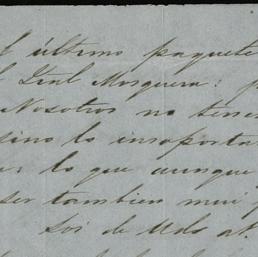 l último paquete
l Gral Mosquera: p
Nosotros no tener
sino lo insoporta
r: lo que aunque
ser tambien mui p
Soi de Udo at.